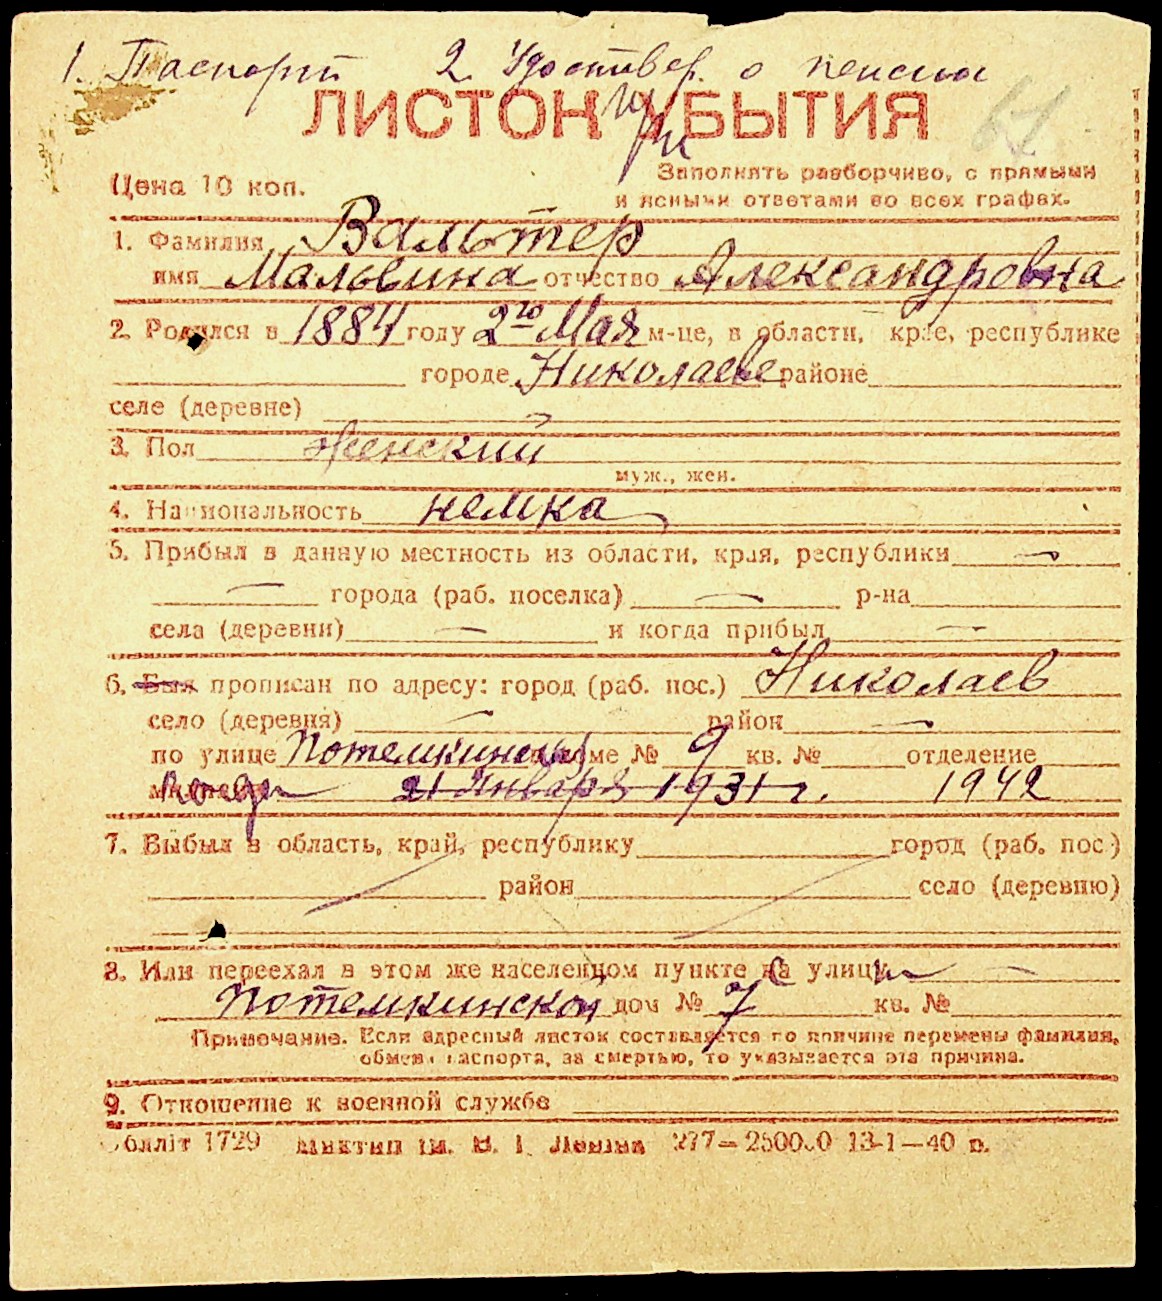 1. Паспорт 2. Удостовер. о пенсии
ЛИСТОК УБЫТИЯ
67
Цена 10 коп.
Заполнять разборчиво, с прямыми
и ясными ответами во всех графах.
1. Фамилия Вальтер
имя Мальвина отчество Александровна
2. Родился в 1884 году 2го Мая м-це, в области, крае, республике
городе Николаеве районе
селе (деревне)
3. Пол женский
муж., жен.
4. Национальность немка
5. Прибыл в данную местность из области, края, республики —
— города (раб. поселка) — р-на
села (деревни) — и когда прибыл —
6. Был прописан по адресу: город (раб. пос.) Николаев
село (деревня) — район —
по улице Потемкинской доме № 9 кв. № отделение
21 Января 1931 г. 1942
7. Выбыл в область, край, республику город (раб. пос.)
район село (деревню)
8. Или переехал в этом же населенном пункте на улицу —
Потемкинской дом № 7 кв. №
Примечание. Если адресный листок составляется по причине перемены фамилии,
обмена паспорта, за смертью, то указывается эта причина.
9. Отношение к военной службе
Обллiт 1729 Миктип iм. В. I. Ленiна 277—250000 13-1—40 р.